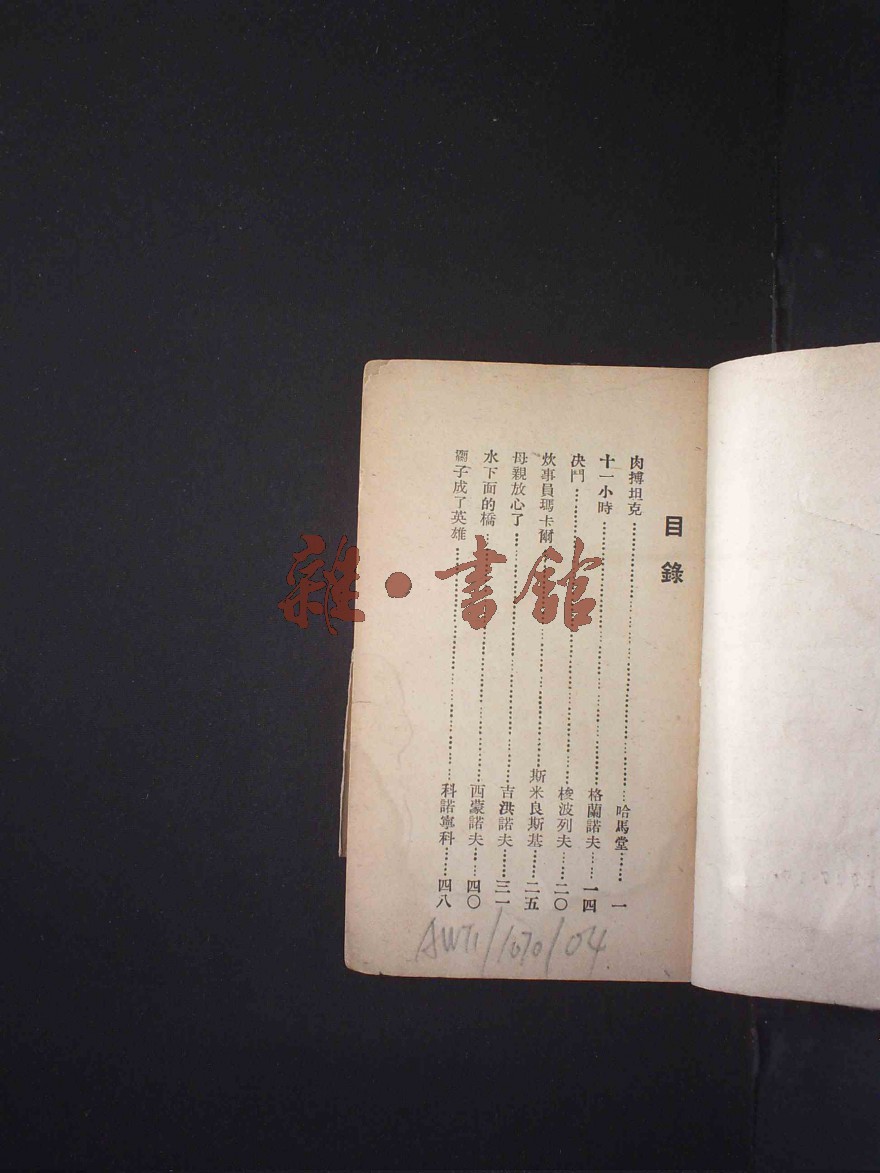 目錄
肉搏坦克……哈馬堂……一
十一小時……格蘭諾夫……一四
决鬥……梭波列夫……二〇
炊事員瑪卡爾……斯米良斯基……二五
母親放心了……吉洪諾夫……三一
水下面的橋……西蒙諾夫……四〇
瘸子成了英雄……科諾寧科……四八
雜·書館